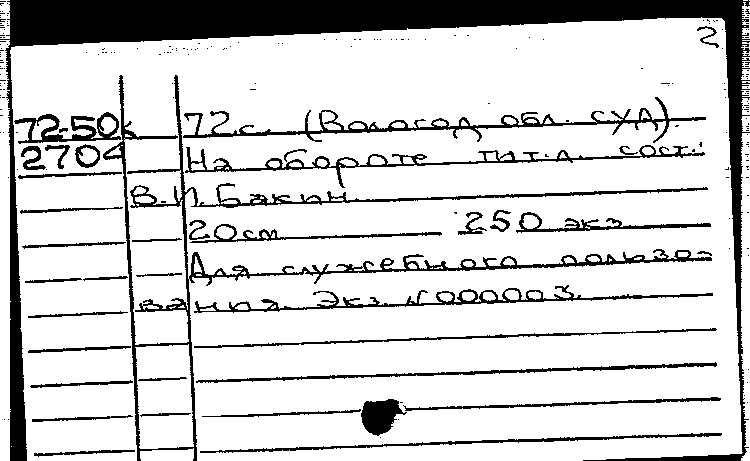 2
72-50k 72с. (Вологод. обл. суд).
2704 На обороте тит.л. сост.:
В.И. Бакин.
20см 250 экз.
Для служебного пользо-
вания. Экз. №000003.